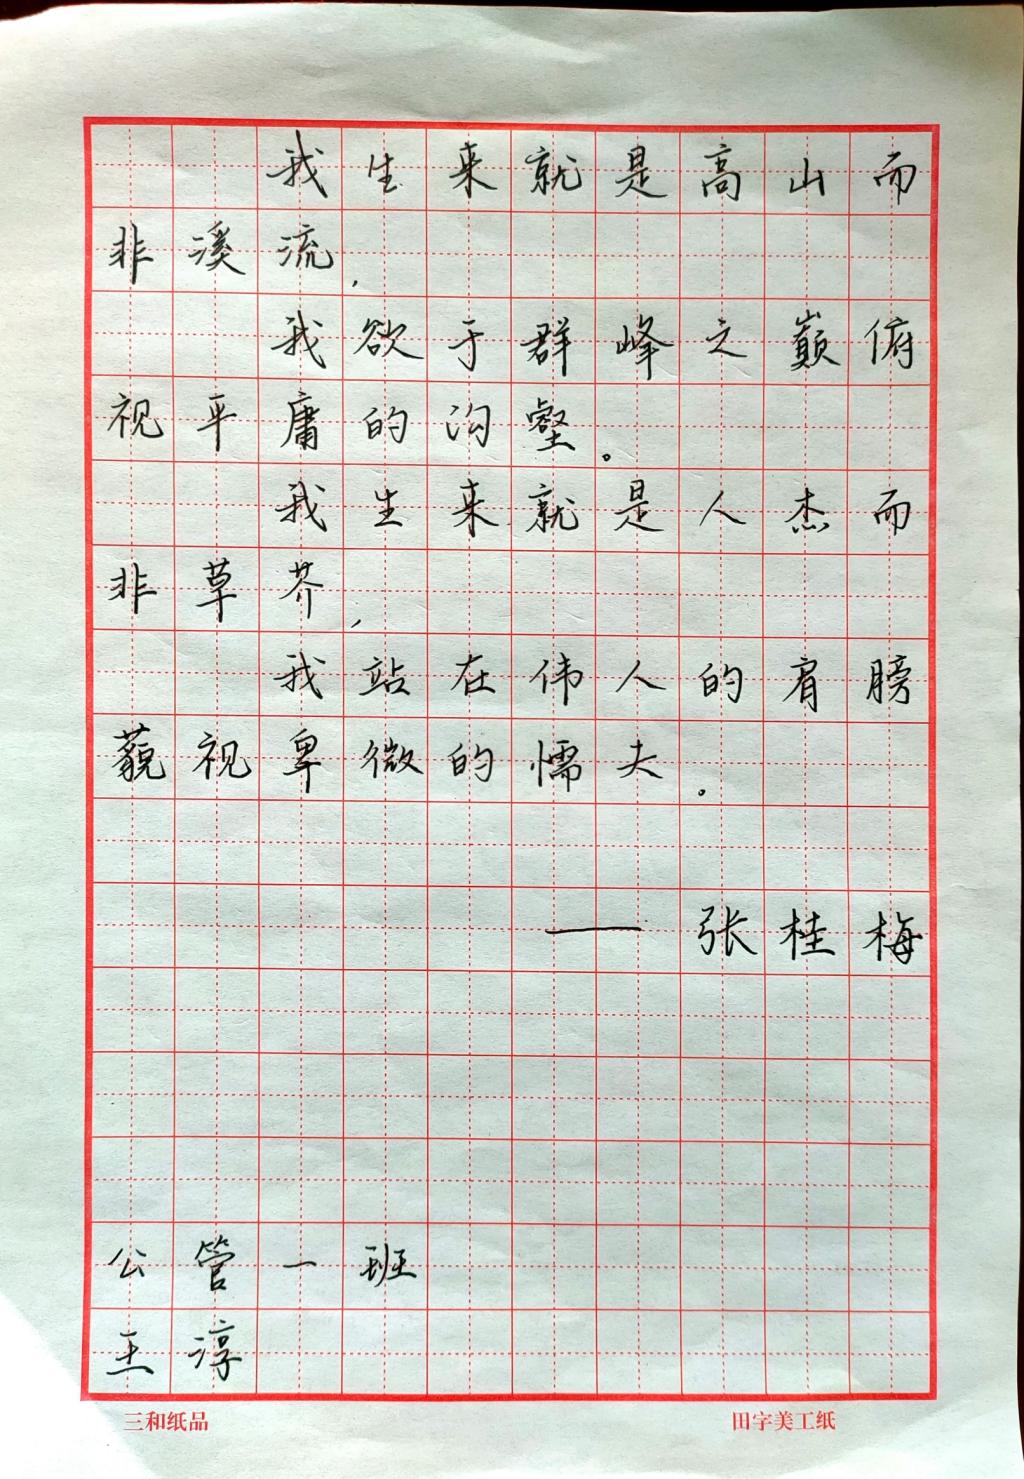 我生来就是高山而
非溪流，
我欲于群峰之巅俯
视平庸的沟壑。
我生来就是人杰而
非草芥，
我站在伟人的肩膀
藐视卑微的懦夫。
——张桂梅
公管一班
王淳
三和纸品 田字美工纸